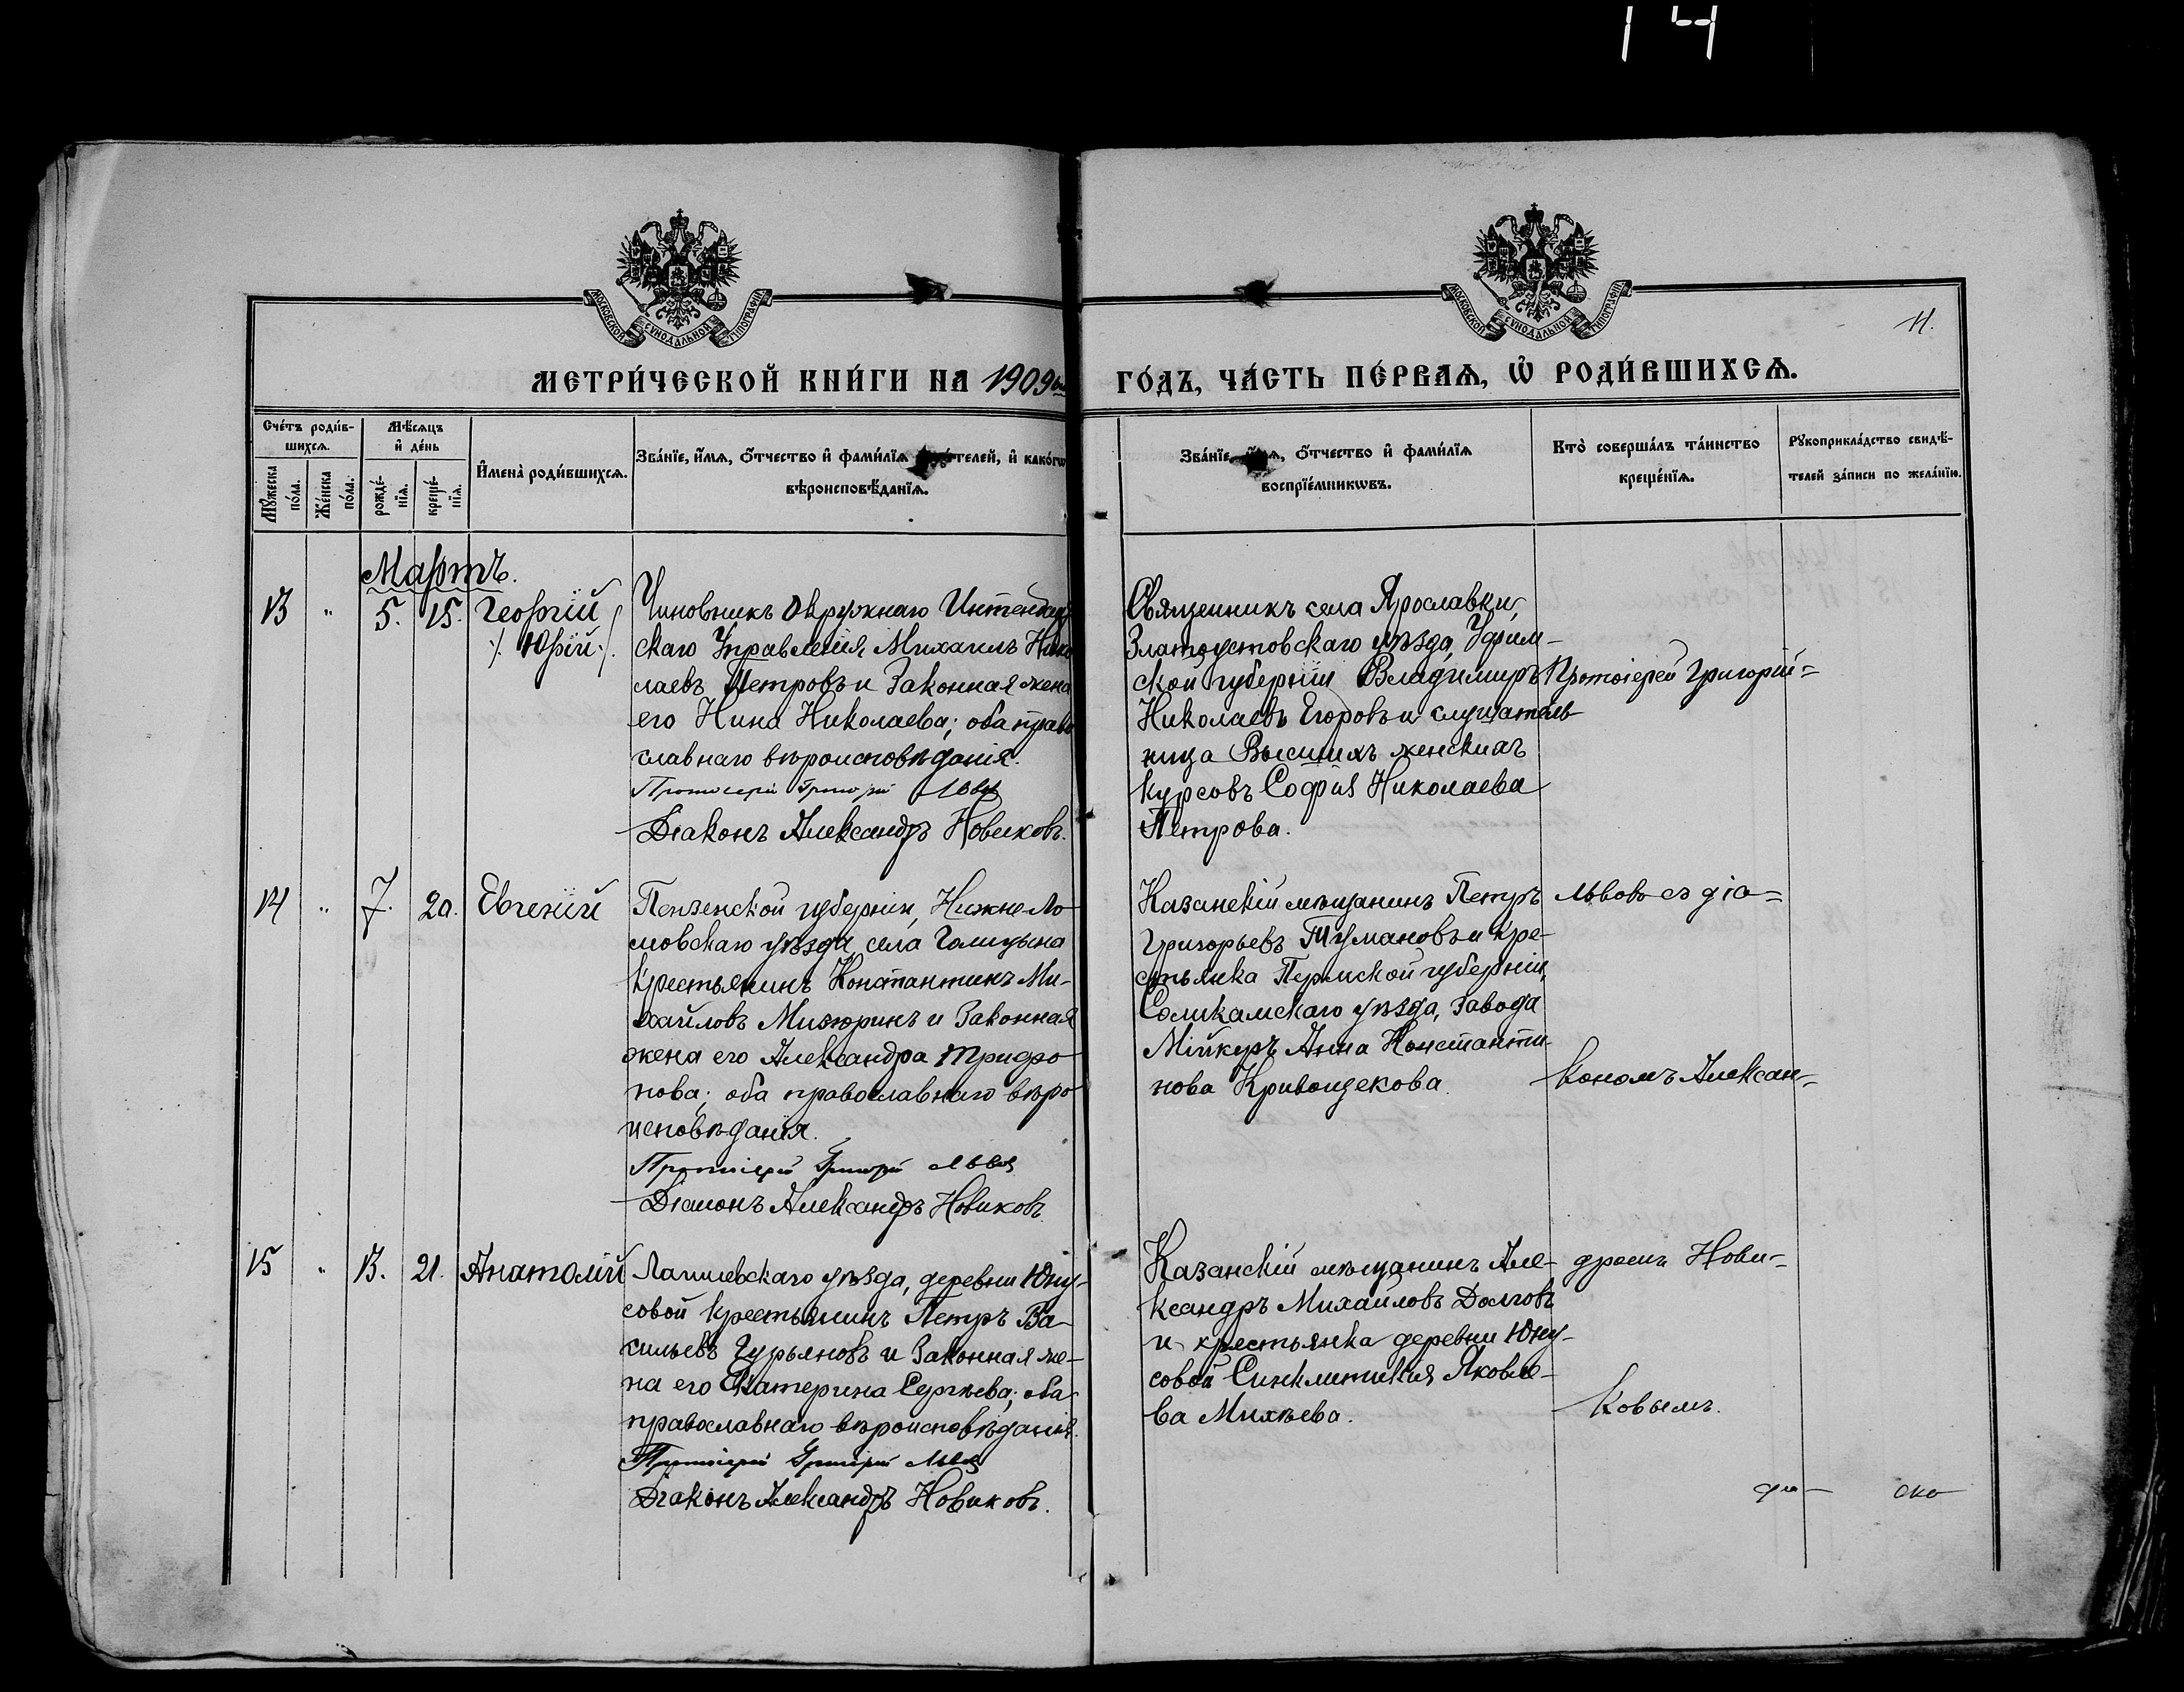 14
МОСКОВСКОЙ СѴНОДАЛЬНОЙ ТИПОГРАФІИ
МОСКОВСКОЙ СѴНОДАЛЬНОЙ ТИПОГРАФІИ
11.
МЕТРИ́ЧЕСКОЙ КНИ́ГИ НА 1909 ГО́ДЪ, ЧА́СТЬ ПЕ́РВАѦ, Ѡ҆ РОДИ́ВШИХСѦ.
Сче́тъ роди́в-
шихсѧ.
Мꙋ́жеска по́ла.
Же́нска по́ла.
Мѣ́сѧцъ
и҆ де́нь
рожде́-
нїѧ.
креще́-
нїѧ.
И҆мена̀ роди́вшихсѧ.
Зва́нїе, и҆́мѧ, ѻ҆́тчество и҆ фами́лїѧ роди́телей, и҆ како́гѡ
вѣроисповѣ́данїѧ.
Зва́нїе, и҆́мѧ, ѻ҆́тчество и҆ фами́лїѧ
воспрїе́мникѡвъ.
Кто̀ соверша́лъ та́инство
креще́нїѧ.
Рꙋкоприкла́дство свидѣ́-
телей за́писи по жела́нїю.
Мартъ.
13 " 5. 15. Георгій
/. Юрій ./
Чиновникъ Окружнаго Интендант
скаго Управленія Михаилъ Нико
лаевъ Петровъ и законная жена
его Нина Николаева; оба право
славнаго вѣроисповѣданія.
Протоіерей Григорій Львов
Діаконъ Александръ Новиковъ.
Священникъ села Ярославки,
Златоустовскаго уѣзда, Уфим-
ской губерніи Владимиръ
Николаевъ Егоровъ и слушатель
ница Высшихъ женскихъ
курсовъ Софія Николаева
Петрова.
Протоіерей Григорій=
14 " 7. 20. Евгеній
Пензенской губерніи, Нижне-Ло-
мовскаго уѣзда, села Голицына
крестьянинъ Константинъ Ми-
хайловъ Мизюринъ и законная
жена его Александра Трифо-
нова; оба православнаго вѣро-
исповѣданія.
Протоіерей Григорій Львов
Діаконъ Александръ Новиковъ.
Казанскій мѣщанинъ Петръ
Григорьевъ Тумановъ и кре-
стьянка Пермской губерніи,
Соликамскаго уѣзда, завода
Мійкуръ Анна Константи-
нова Кривощекова.
Львовъ съ діа=
кономъ Алексан=
15 " 13. 21. Анатолій
Лаишевскаго уѣзда, деревни Юну-
совой крестьянинъ Петръ Ва-
сильевъ Гурьяновъ и законная же-
на его Екатерина Сергѣева; оба
православнаго вѣроисповѣданія.
Протоіерей Григорій Львов
Діаконъ Александръ Новиковъ.
Казанскій мѣщанинъ Але-
ксандръ Михайловъ Долговъ
и крестьянка деревни Юну-
совой Синклитикія Яковле-
ва Михѣева.
дромъ Нови=
ковымъ.